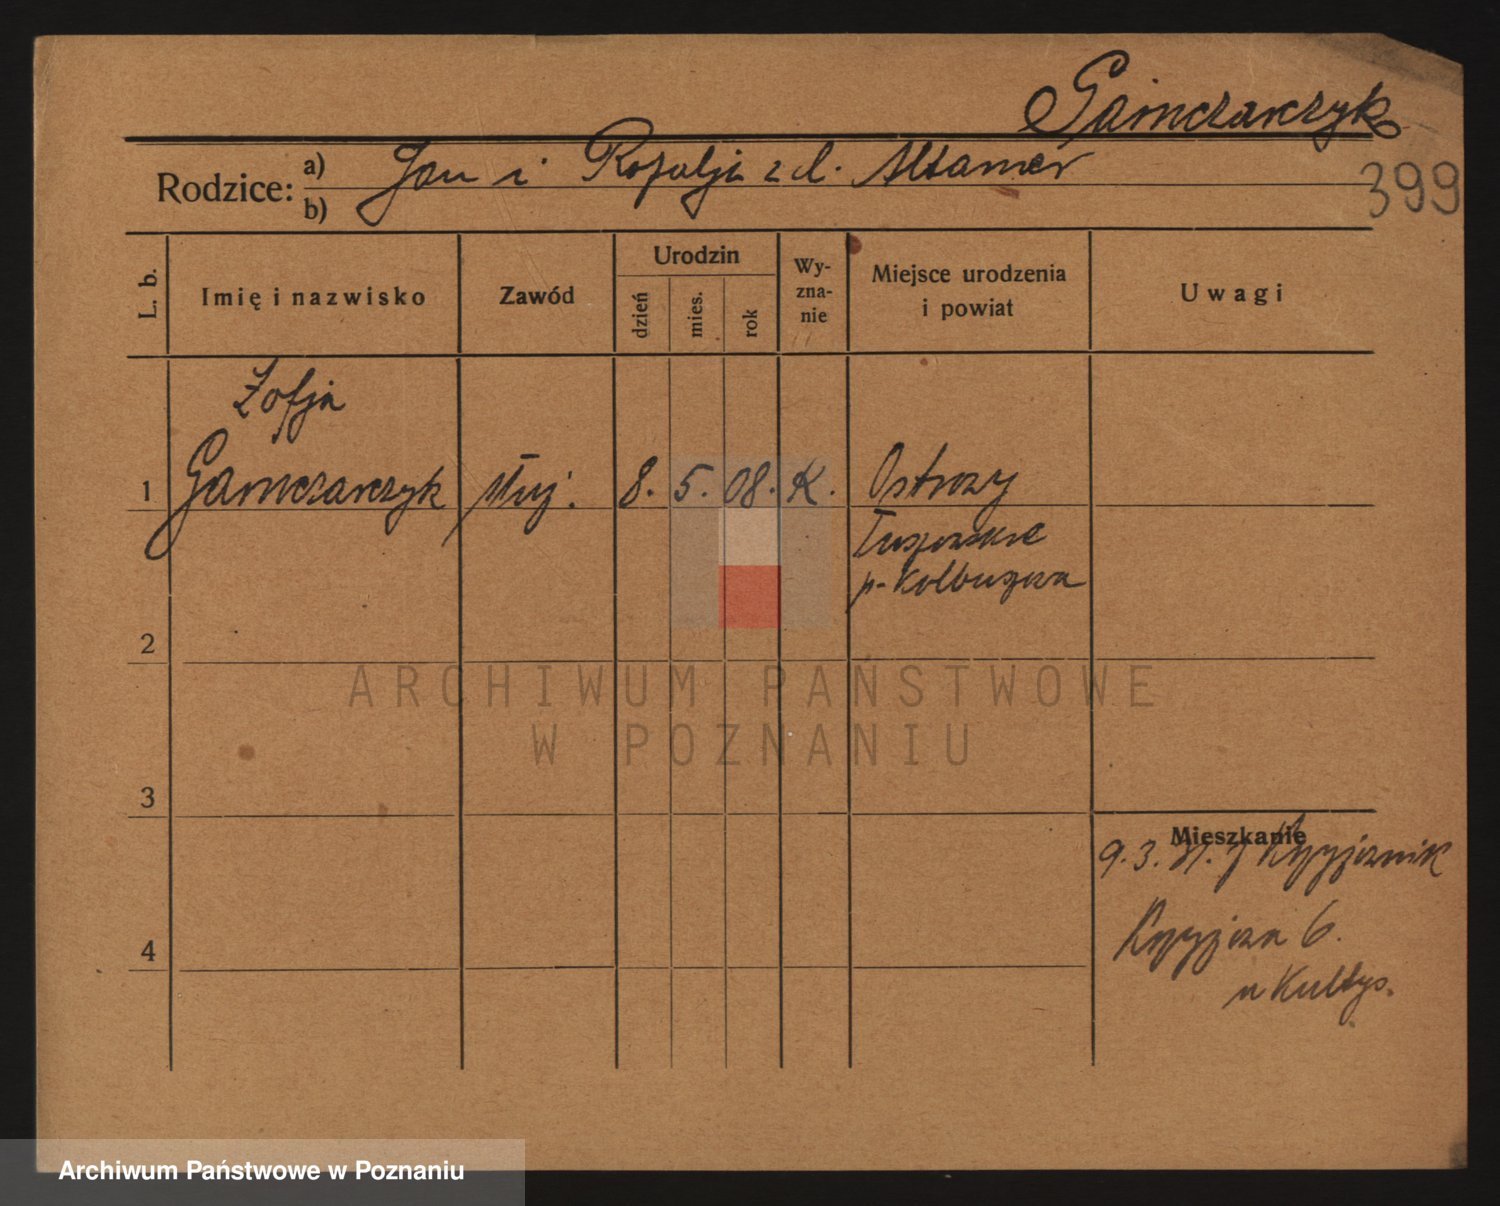 Gamczarczyk
Rodzice: a) Jan i Rozalja z d. Altamer
b)
399
L. b.
Imię i nazwisko
Zawód
Urodzin
dzień
mies.
rok
Wy-
zna-
nie
Miejsce urodzenia
i powiat
Uwagi
Zofja
1 Gamczarczyk służ. 8. 5. 08. K. Ostrowy
Tuszowskie
p. Kolbuszowa
2
3
4
Mieszkanie
9. 3. 31. z
6.
u Kultys.
ARCHIWUM PAŃSTWOWE
W POZNANIU
Archiwum Państwowe w Poznaniu